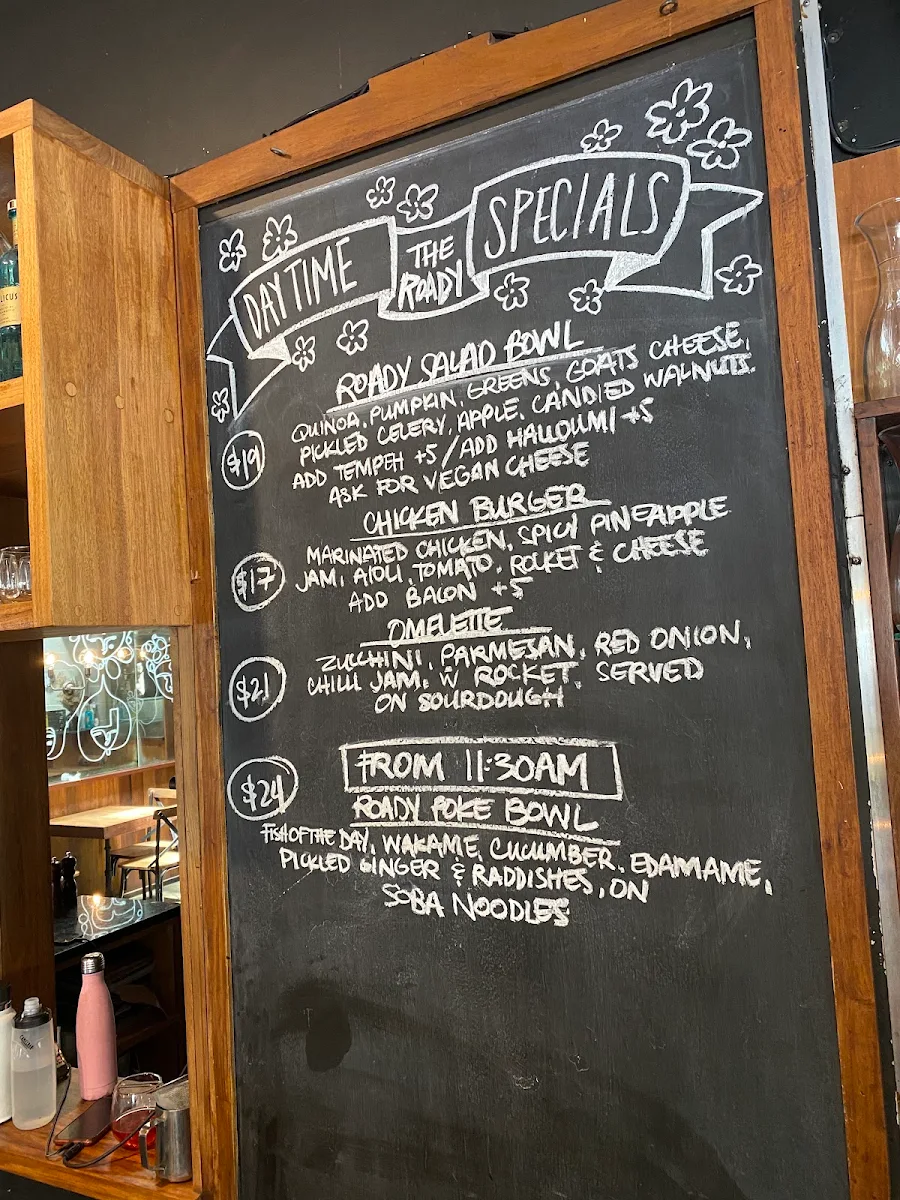 DAYTIME THE ROADY SPECIALS
ROADY SALAD BOWL
QUINOA, PUMPKIN, GREENS, GOATS CHEESE,
PICKLED CELERY, APPLE, CANDIED WALNUTS.
$19
ADD TEMPEH +5 / ADD HALLOUMI +5
ASK FOR VEGAN CHEESE
CHICKEN BURGER
MARINATED CHICKEN, SPICY PINEAPPLE
$17
JAM, AIOLI, TOMATO, ROCKET & CHEESE
ADD BACON +5
OMELETTE
ZUCCHINI, PARMESAN, RED ONION,
$21
CHILLI JAM, W ROCKET, SERVED
ON SOURDOUGH
FROM 11:30AM
$24
ROADY POKE BOWL
FISH OF THE DAY, WAKAME, CUCUMBER, EDAMAME,
PICKLED GINGER & RADDISHES, ON
SOBA NOODLES